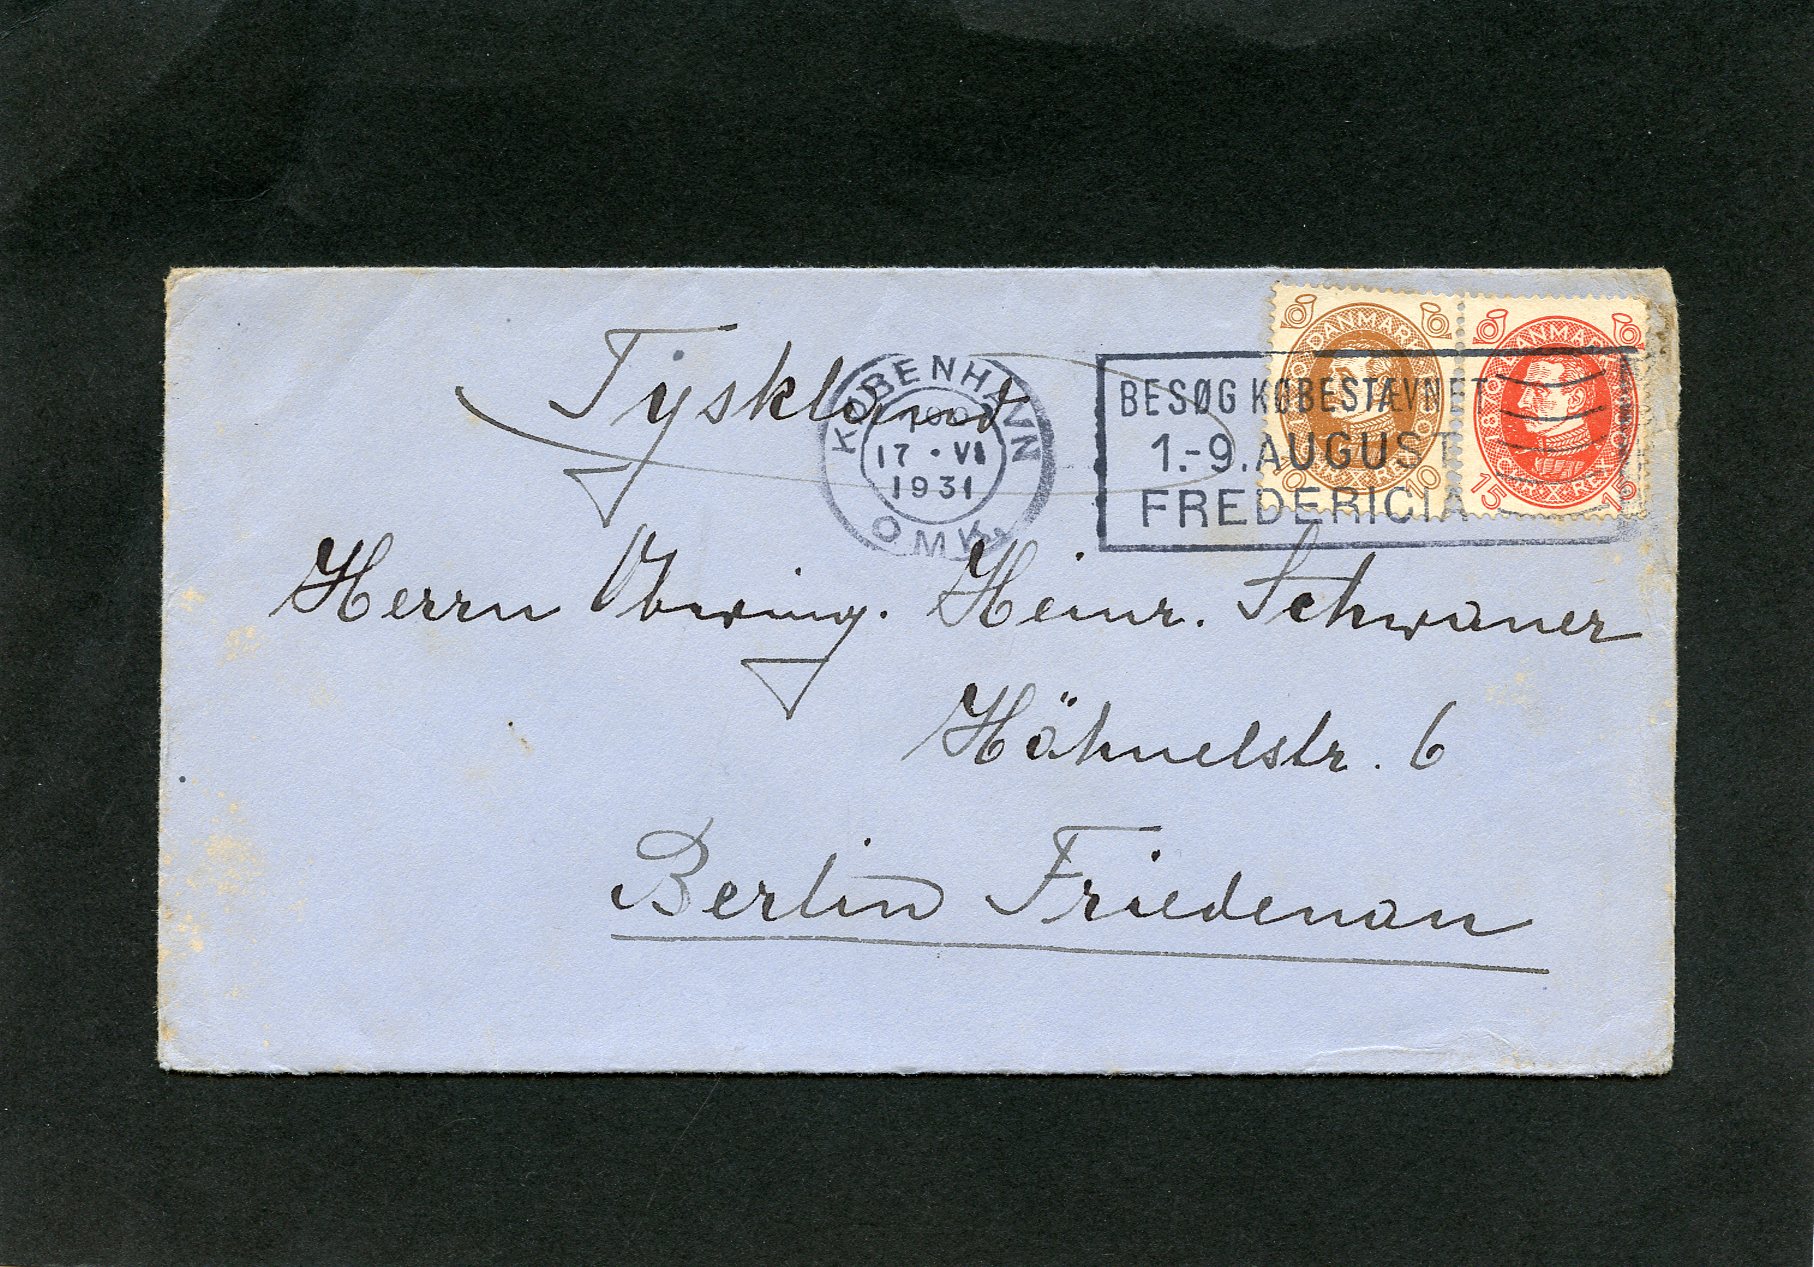 Tyskland
KØBENHAVN
17 · VI
1931
OMK.
BESØG KØBESTÆVNET
1.-9. AUGUST
FREDERICIA
DANMARK
10 10
DANMARK
1870
CHR·X·REX
15 15
Herrn Obering. Heinr. Schwaner
Hähnelstr. 6
Berlin Friedenau